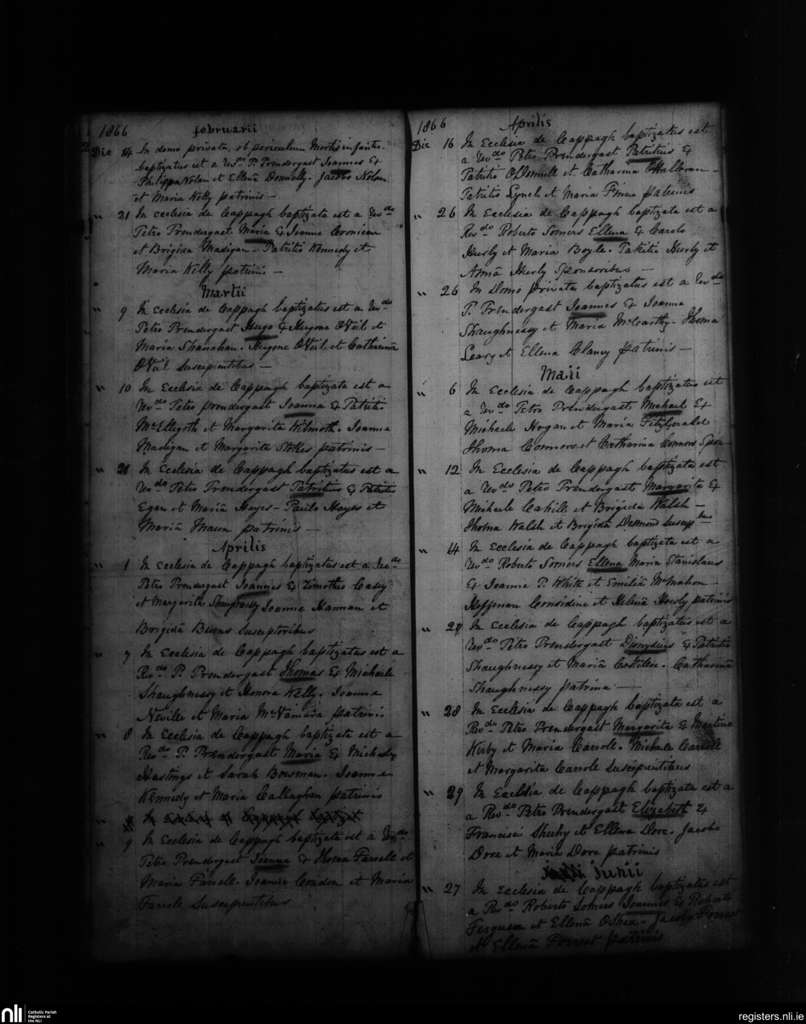 1866 februarii
Die 14 In domo privata, ob periculum mortis infantis
baptizatus est a Revdo P. Prendergast Joannes ex
Philippo Nolan et Ellena Donnolly. Jacobo Nolan
et Maria Kelly patrinis —
" 21 In ecclesia de Cappagh baptizata est a Revdo
Petro Prendergast Maria ex Joanne Cronican
et Brigida Madigan. Patritio Kennedy et
Maria Kelly patrinis —
Martii
" 9 In Ecclesia de Cappagh baptizatus est a Revdo
Petro Prendergast Hugo ex Hugone ONeil et
Maria Shanahan. Hugone ONeil et Catherina
ONeil Suscipientibus —
" 10 In Ecclesia de Cappagh baptizata est a
Revdo Petro Prendergast Joanna ex Patritio
McElligoth et Margarita Wilmoth. Joanne
Madigan et Margarita Stokes patrinis —
" 21 In Ecclesia de Cappagh baptizatus est a
Revdo Petro Prendergast Patritius ex Patritio
Egan et Maria Hayes — Paulo Hayes et
Maria Mason patrinis —
Aprilis
" 1 In Ecclesia de Cappagh baptizatus est a Revdo
Petro Prendergast Joannes ex Timotheo Casey
et Margarita Joanne Hannan et
Brigida Burns Susceptoribus
" 7 In Ecclesia de Cappagh baptizatus est a
Revdo P. Prendergast Thomas ex Michaele
Shaughnessy et Honora Kelly. Joanne
Neville et Maria McNamara patrinis
" 8 In Ecclesia de Cappagh baptizata est a
Revdo P. Prendergast Maria ex Michaele
Hastings et Sarah Bowman. Joanne
Kennedy et Maria Callaghan patrinis
" 9 In Ecclesia de Cappagh baptizata est a Revdo
Petro Prendergast Joanna ex Farrell et
Maria Farrell. Joanne Condon et Maria
Farrell Suscipientibus
1866 Aprilis
Die 16 In Ecclesia de Cappagh baptizatus est
a Revdo Petro Prendergast Patritius ex
Patritio ODonnell et Catharina OHalloran —
Patritio Lynch et Maria patrinis
" 26 In Ecclesia de Cappagh baptizata est a
Revdo Roberto Somers Ellena ex Carolo
Hurly et Maria Boyle. Patritio Hurly et
Anna Hurly Sponsoribus —
" 26 In Domo privata baptizatus est a Revdo
P. Prendergast Joannes ex Joanne
Shaughnessy et Maria McCarthy. Thoma
Leary et Ellena Clancy patrinis —
Maii
" 6 In Ecclesia de Cappagh baptizatus est
a Revdo Petro Prendergast Michael ex
Michaele Hogan et Maria Fitzgerald
Thoma Connors et Catharina Connors Spon
" 12 In Ecclesia de Cappagh baptizata est
a Revdo Petro Prendergast Margarita ex
Michaele Cahill et Brigida Walsh —
Thoma Walsh et Brigida Desmond
" 14 In Ecclesia de Cappagh baptizata est a
Revdo Roberto Somers Ellena Maria Stanislaus
ex Joanne P. White et Emilia McMahon.
Heffernan Considine et Helena Hurly patrinis
" 20 In Ecclesia de Cappagh baptizatus est a
Revdo Petro Prendergast Dionysius ex Patritio
Shaughnessy et Maria Costelloe. Catharina
Shaughnessy patrina —
" 28 In Ecclesia de Cappagh baptizata est a
Revdo Petro Prendergast Margarita ex Martino
Kirby et Maria Carroll. Michaele Carroll
et Margarita Carroll Suscipientibus
" 29 In Ecclesia de Cappagh baptizata est a
a Revdo Petro Prendergast Elizabeth ex
Francisci Sheehy et Ellena Dore. Jacobo
Dore et Maria Dore patrinis
Junii
" 27 In Ecclesia de Cappagh baptizatus est
a Revdo Roberto Somers Joannes ex Roberto
Ferguson et Ellena OShea. Jacobo Forrest
et Ellena Forrest patrinis
nli Catholic Parish
Registers at
the NLI
registers.nli.ie